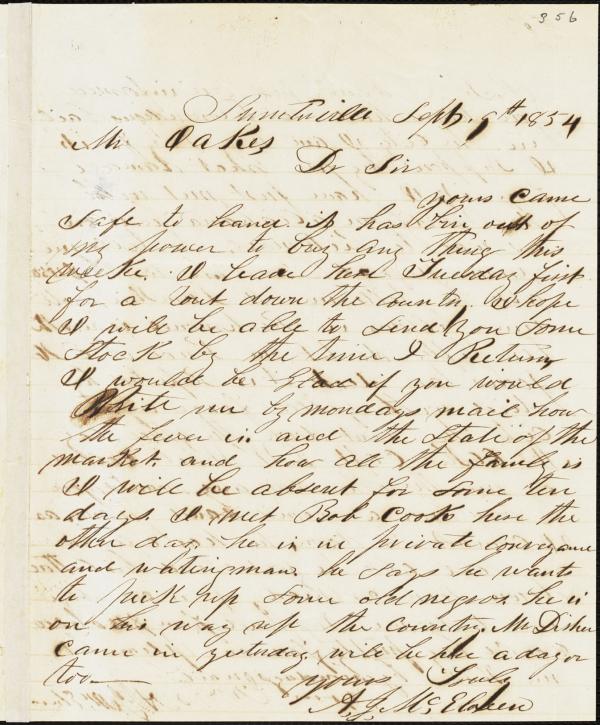 356
Sumterville Sept. 9th 1854
Mr Oakes
Dr Sir
yours came
safe to hand. It has bin out of
my power to buy any thing this
weeke. I leave here Tuesday first
for a rout down the country. I hope
I will be able to send you some
Stock by the time I Return
I would be glad if you would
Write me by mondays mail how
the fever is and the State of the
market. and how all the family is
I will be absent for some ten
days. I met Bob Cook here the
other day he is in private conveyance
and waitingman. he says he wants
to pick up some old negros. he is
on his way up the country. Mr Disher
came in yesterday will be here a day or
too— yours Truly
A. J. McElveen